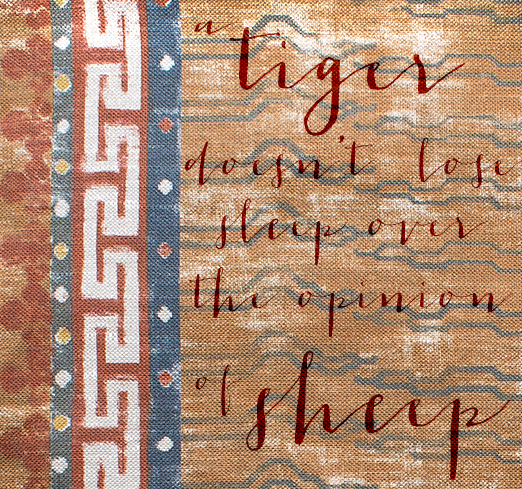 a
tiger
doesn't lose
sleep over
the opinion
of sheep